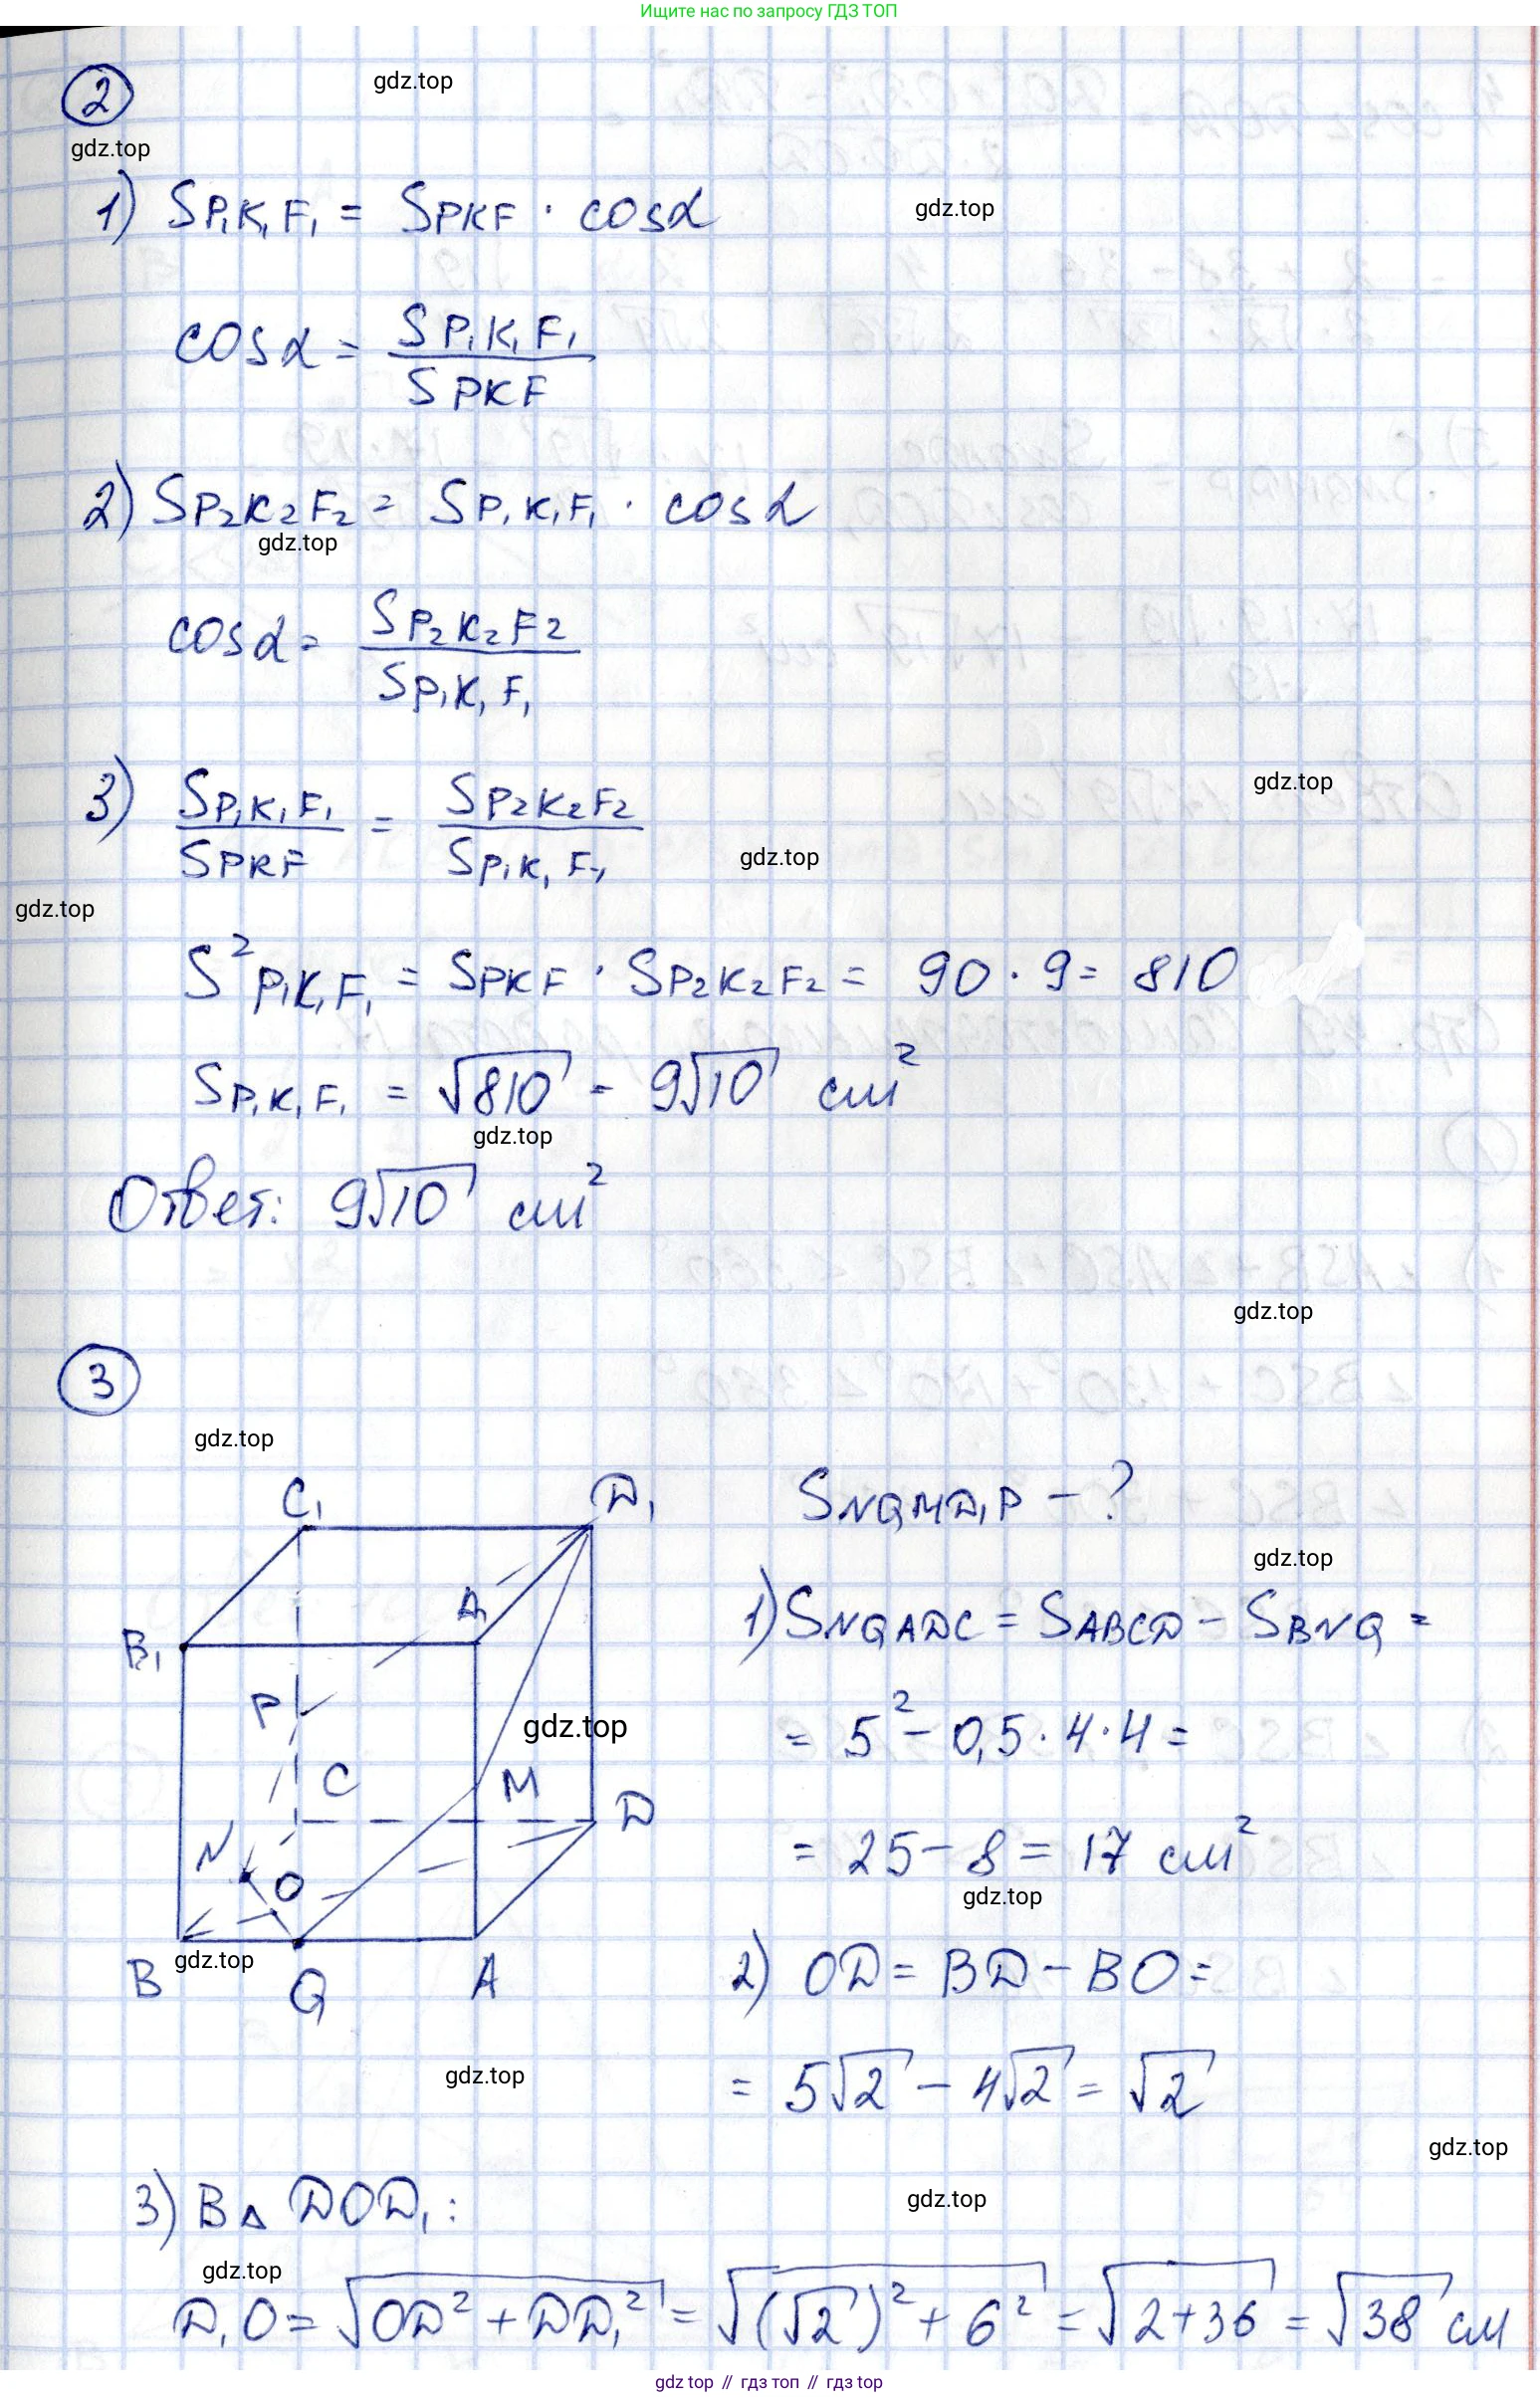 Ищите нас по запросу ГДЗ ТОП
2
gdz.top
gdz.top
1) SP₁K₁F₁ = SPKF · cosα
gdz.top
cosα = SP₁K₁F₁ / SPKF
2) SP₂K₂F₂ = SP₁K₁F₁ · cosα
gdz.top
cosα = SP₂K₂F₂ / SP₁K₁F₁
gdz.top
3) SP₁K₁F₁ / SPKF = SP₂K₂F₂ / SP₁K₁F₁
gdz.top
gdz.top
S²P₁K₁F₁ = SPKF · SP₂K₂F₂ = 90 · 9 = 810
SP₁K₁F₁ = √810 = 9√10 см²
gdz.top
Ответ: 9√10 см²
gdz.top
3
gdz.top
C₁ D₁
SNQMD₁P - ?
gdz.top
B₁ A₁
1) SNQADC = SABCD - SBNQ =
P
gdz.top
= 5² - 0,5 · 4 · 4 =
C M D
N O
= 25 - 8 = 17 см²
gdz.top
B gdz.top Q A
2) OD = BD - BO =
gdz.top
= 5√2 - 4√2 = √2
gdz.top
3) В △ DOD₁:
gdz.top
gdz.top
D₁O = √(OD² + DD₁²) = √((√2)² + 6²) = √(2+36) = √38 см
gdz top // гдз топ // гдз top